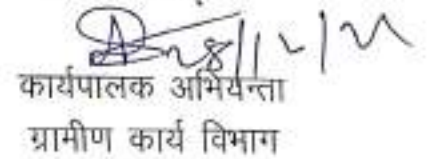 कार्यपालक अभियन्ता
ग्रामीण कार्य विभाग